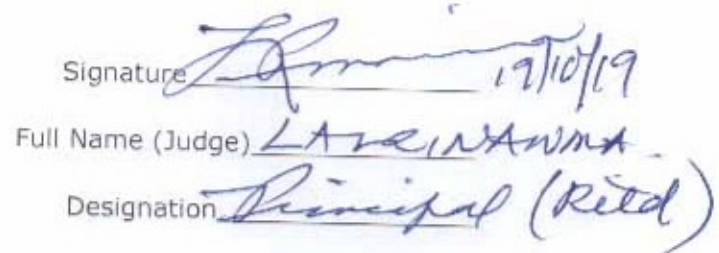 Signature 19/10/19
Full Name (Judge) LALRINAWMA
Designation Principal (Retd)